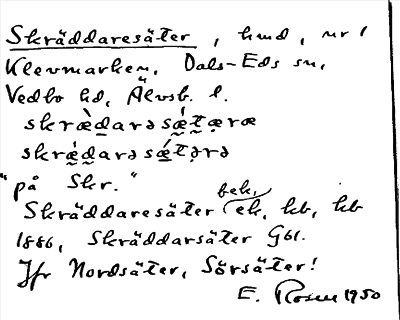 Skräddaresäter, hmd, nr 1
Klevmarken, Dals-Eds sn,
Vedbo hd, Älvsb. l.
skræ̀d̠arə sǽ̠t̠æræ
skræ̠̀d̠arə sǽ̠t̠ərə
"på Skr."
bek,
Skräddaresäter ek, kb, hb
1886, Skräddarsäter Gbl.
Jfr Nordsäter, Sörsäter!
E. Rosen 1950